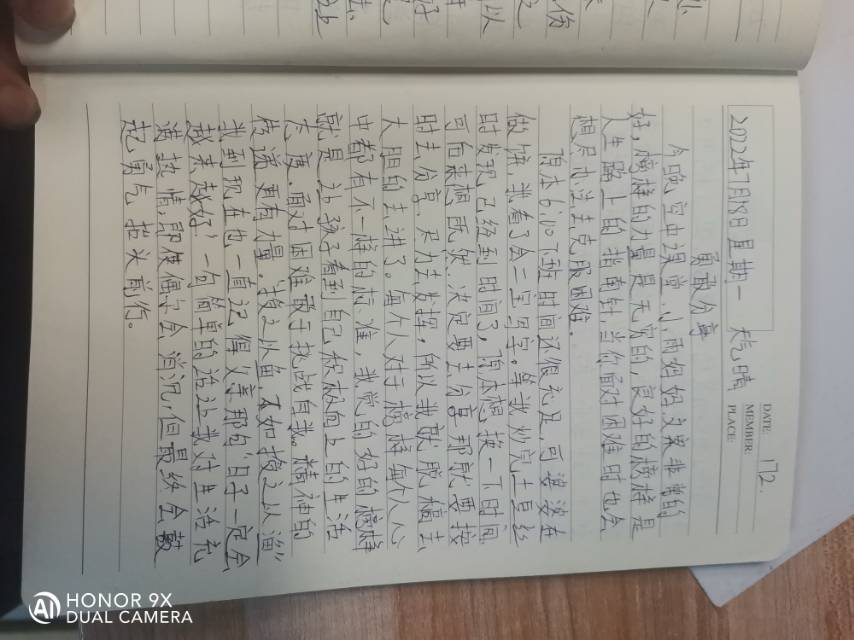 DATE: 172.
MEMBER:
PLACE:
2022年7月18日 星期一 天气晴
勇敢分享
今晚空中课堂,小雨妈妈文案非常的
好,榜样的力量是无穷的,良好的榜样是
人生路上的指南针,当你面对困难时也会
想尽办法去克服困难。
原本6:10下班时间还很充足,可婆婆在
做饼,我看了会二宝写字。等我炒完土豆丝
时发现已经到时间了,原本想换一下时间
可后来想既然决定要去分享那就要按
时去分享,尽力去发挥,所以我就脱稿去
大胆的去讲了。每个人对于榜样每个人心
中都有不一样的标准,我觉的好的榜样
就是让孩子看到自己积极向上的生活
态度。面对困难敢于挑战自我。精神的
传递更有力量。授之以鱼不如授之以渔"
我到现在也一直记得父亲那句'日子一定会
越来越好',一句简单的话让我对生活充
满热情,即使偶尔会消沉,但最终会鼓
起勇气抬头前行。
HONOR 9X
DUAL CAMERA